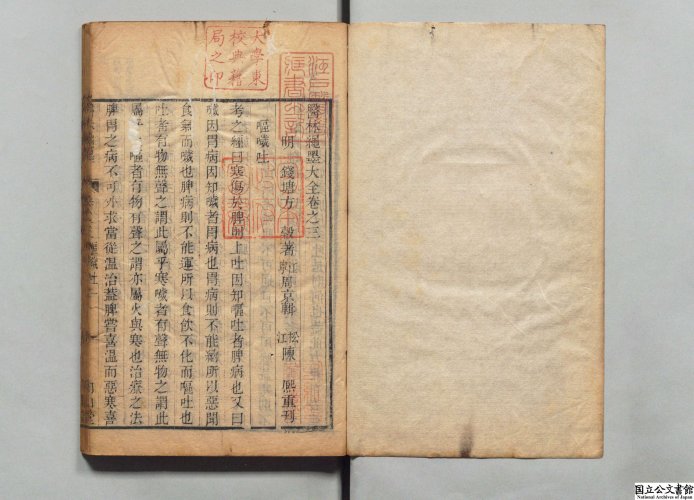 醫林繩墨大全卷之三
明 錢塘方 穀著 周京輯 松江陳 熈重刊
嘔噦吐
考之經曰寒傷於脾則上吐因知嘔吐者脾病也又曰
噦因胃病因知噦者胃病也胃病則不能納所以惡聞
食氣而噦也脾病則不能運所以食飲不化而嘔吐也
吐者有物無聲之謂此屬乎寒噦者有聲無物之謂此
屬 嘔者有物有聲之謂亦屬火與寒也治療之法
脾胃之病不可外求當從温治蓋脾嘗喜温而惡寒喜
大學東
校典籍
局之印
国立公文書館
National Archives of Japan